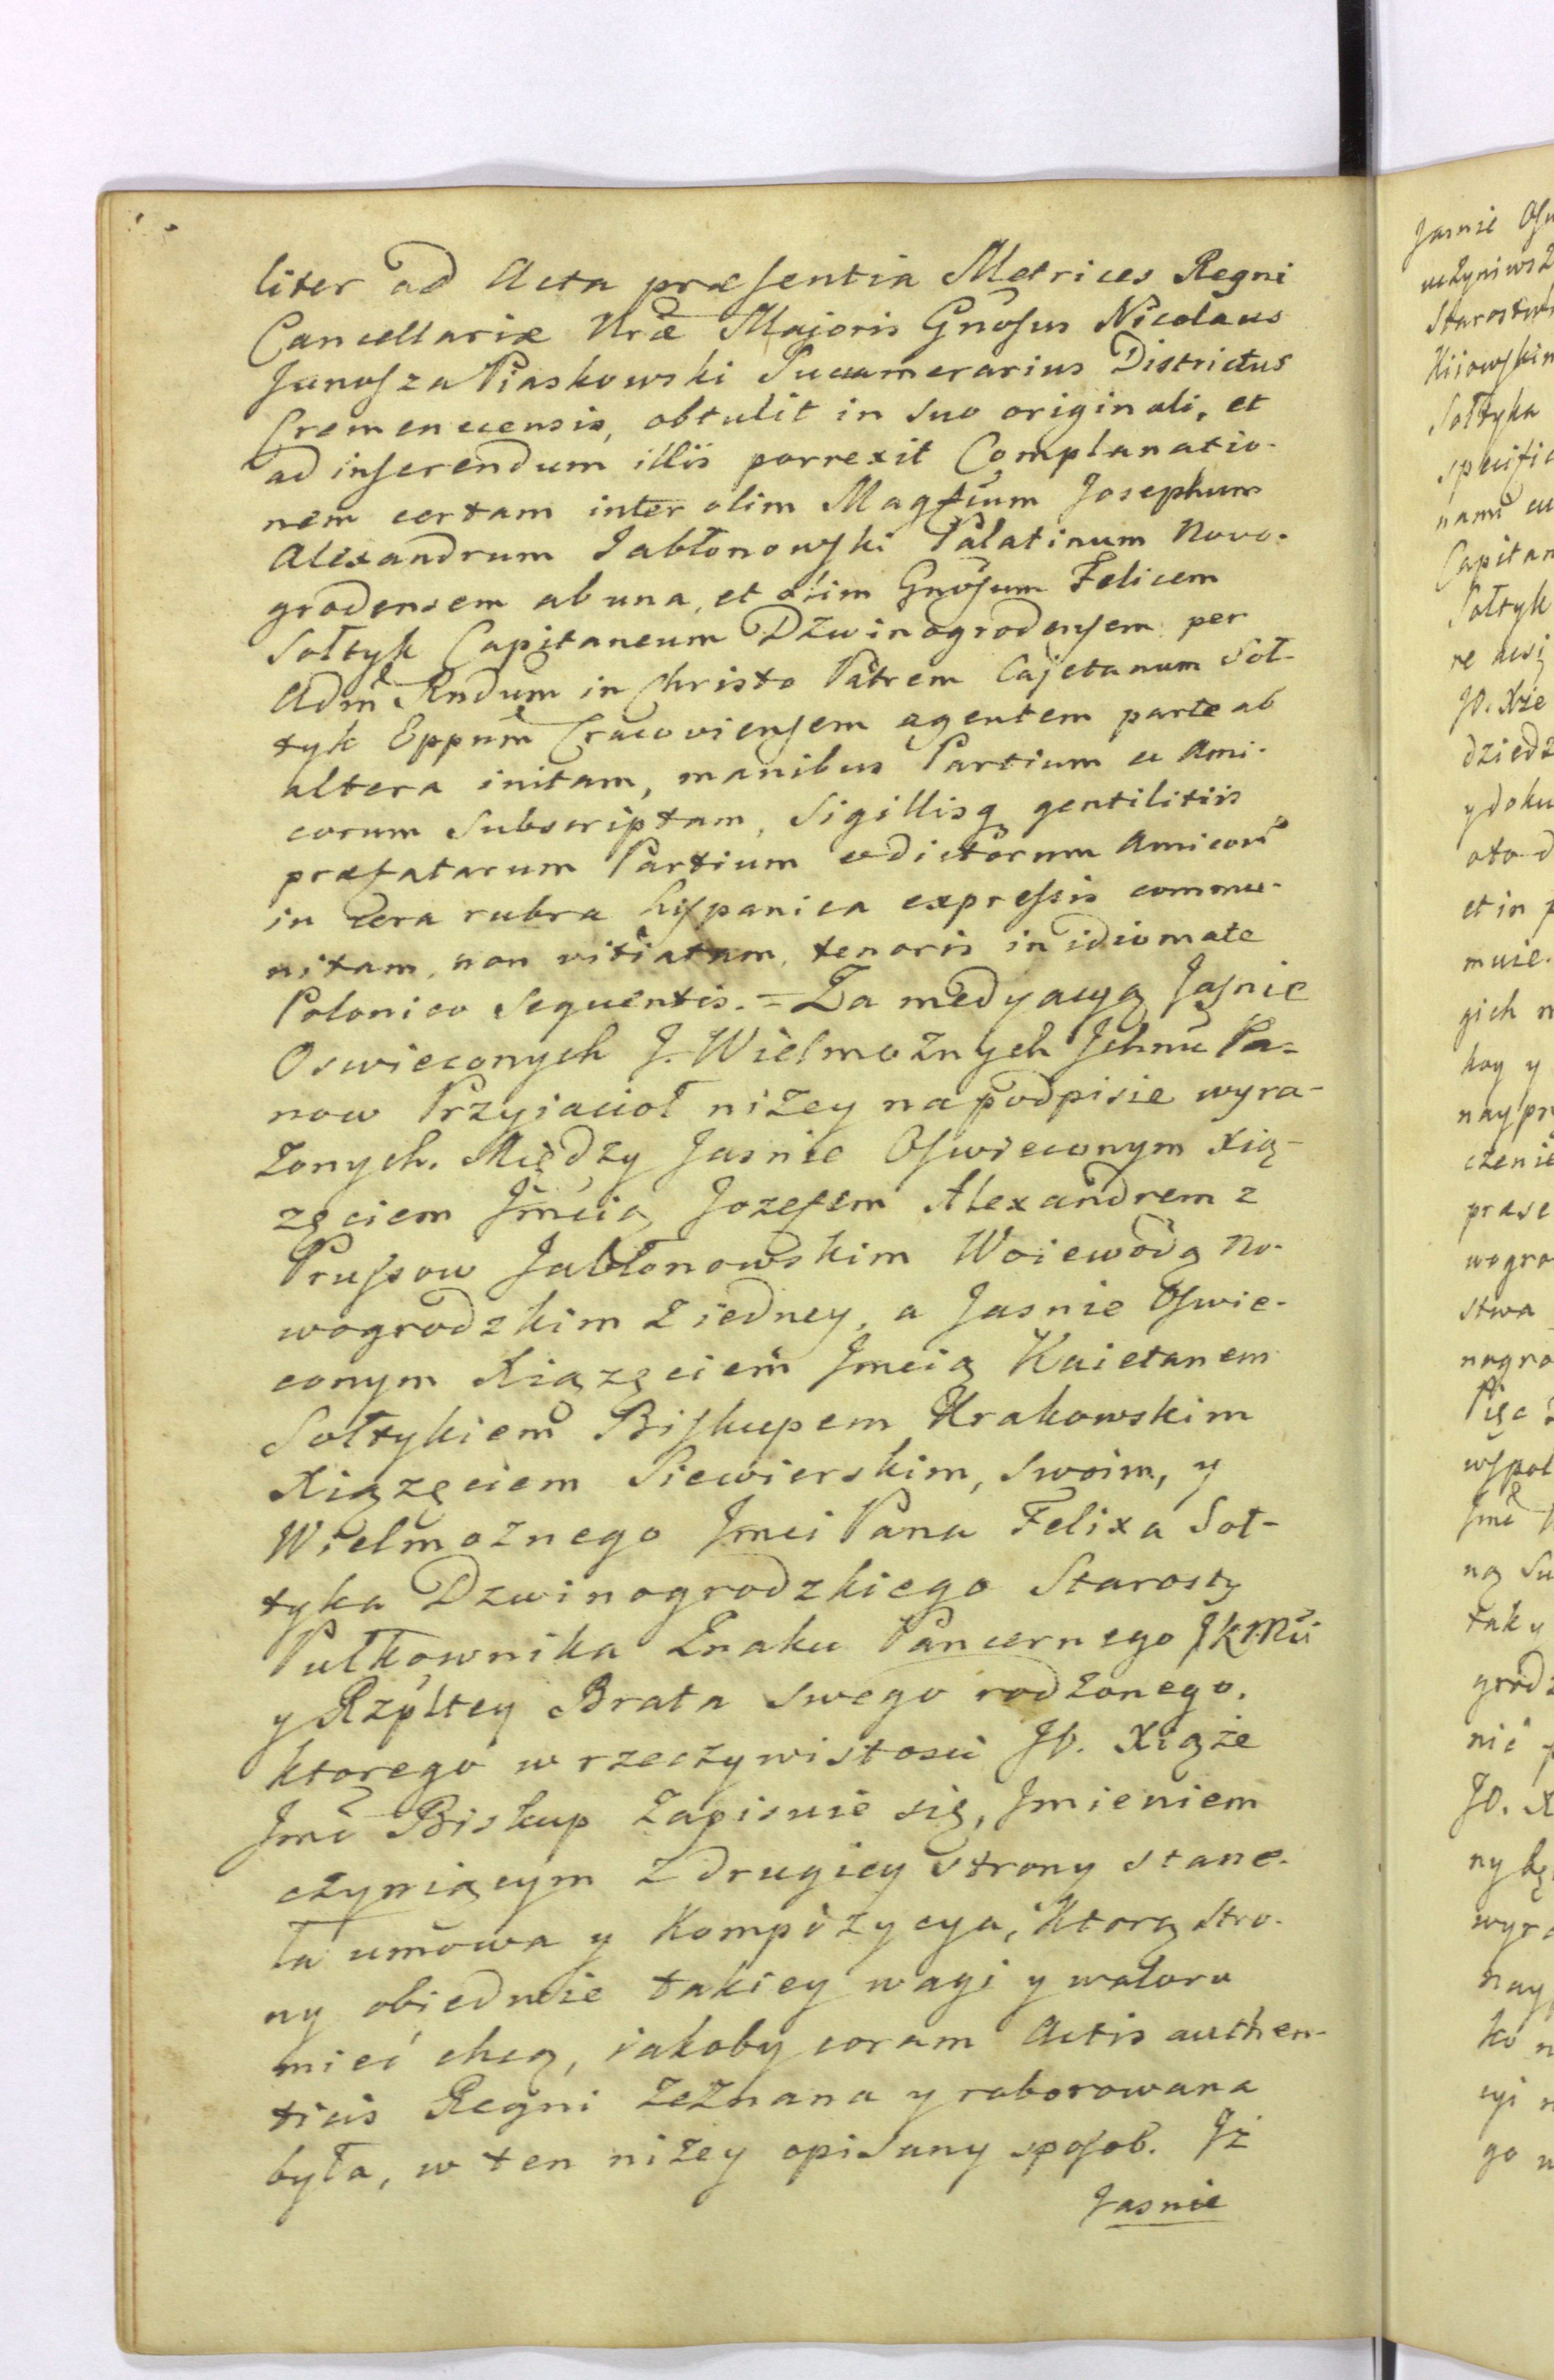 liter ad Acta præsentia Metrices Regni
Cancellariæ Nræ Majoris Gnosus Nicolaus
Junosza Piaskowski Succamerarius Districtus
Cremenecensis, obtulit in suo originali, et
ad inserendum illis porrexit Complanatio-
nem certam inter olim Magficum Josephum
Alexandrum Jabłonowski Palatinum Novo-
grodensem ab una, et olim Gnosum Felicem
Sołtyk Capitaneum Dzwinogrodensem per
Adm Rndum in Christo Patrem Cajetanum Soł-
tyk Eppum Cracoviensem agentem parte ab
altera initam, manibus Partium et Ami-
corum Subscriptam, Sigillisq gentilitiis
præfatarum Partium et dictorum Amicorū
in cera rubra hyspanica expressis commu-
nitam, non vitiatam, tenoris in idiomate
Polonico Sequentis. = Za medyacyą Jaśnie
Oswieconych J. Wielmożnych Jchmć Pa-
now Przyiacioł niżey na podpisie wyra-
żonych. Między Jasnie Oswieconym Xią-
zęciem Jmcią Jozefem Alexandrem z
Prussow Jabłonowskim Woiewodą No-
wogrodzkim z iedney, a Jasnie Oswie-
conym Xiązęciem Jmcią Kaietanem
Sołtykiem Biskupem Krakowskim
Xiązęciem Siewierskim, swoim, y
Wielmożnego Jmci Pana Felixa Soł-
tyka Dzwinogrodzkiego Starosty
Pułkownika Znaku Pancernego JKMci
y Rzpltey Brata swego rodzonego.
ktorego w rzeczywistosci JO. Xiąże
Jmć Biskup zapisuie się, Jmieniem
czyniącym z drugiey strony stane-
ła umowa y Kompozycya, Ktorą stro-
ny obiedwie takiey wagi y waloru
mieć chcą, iakoby coram Actis authen-
ticis Regni zeznana y roborowana
była, w ten niżey opisany sposob. Jż
Jasnie